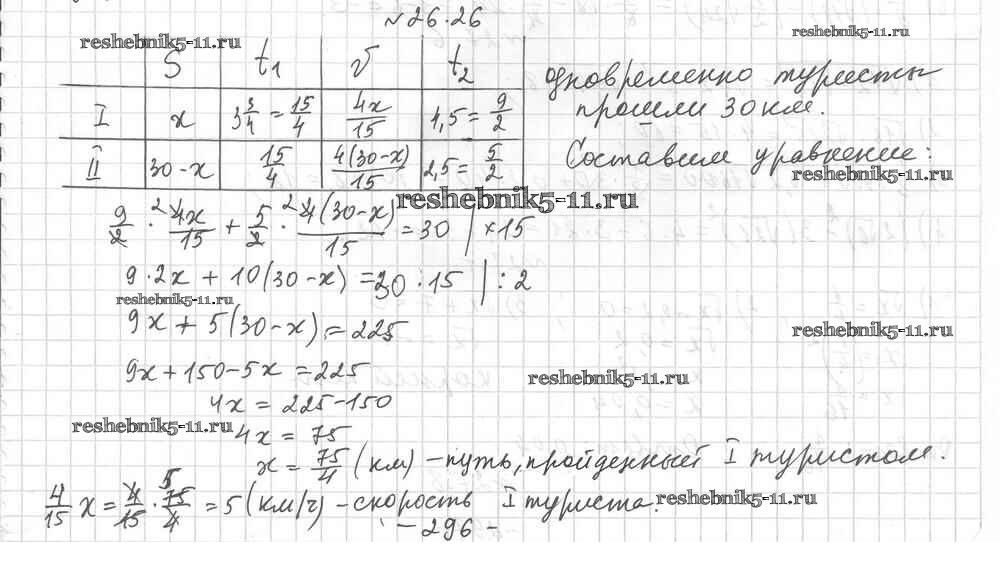 №26.26
reshebnik5-11.ru
reshebnik5-11.ru
S t₁ V t₂
I x 3 3/4 = 15/4 4x/15 4,5 = 9/2
II 30-x 15/4 4(30-x)/15 2,5 = 5/2
одновременно туристы
прошли 30 км.
Составим уравнение:
reshebnik5-11.ru
reshebnik5-11.ru
9/2 · 2 4x/15 + 5/2 · 2 4(30-x)/15 = 30 | ×15
9·2x + 10(30-x) = 30·15 | :2
reshebnik5-11.ru
9x + 5(30-x) = 225
reshebnik5-11.ru
9x + 150 - 5x = 225
reshebnik5-11.ru
4x = 225 - 150
reshebnik5-11.ru
4x = 75
x = 75/4 (км) - путь, пройденный I туристом.
4/15 x = 4/15 · 5 75/4 = 5 (км/ч) - скорость I туриста.
reshebnik5-11.ru
- 296 -